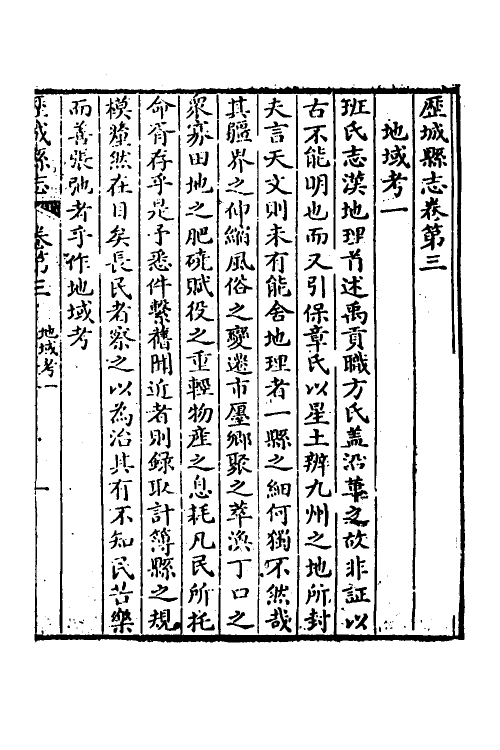 歷城縣志卷第三
地域考一
班氏志漢地理首述禹貢職方氏蓋沿革之故非証以
古不能明也而又引保章氏以星土辨九州之地所封
夫言天文則未有能舍地理者一縣之細何獨不然哉
其疆界之伸縮風俗之變遷市廛鄉聚之萃渙丁口之
眾寡田地之肥磽賦役之重輕物產之息耗凡民所托
命胥存乎是予悉件繫舊聞近者則錄取計簿縣之規
模釐然在目矣長民者察之以為治其有不知民苦樂
而善張弛者乎作地域考
歷城縣志
卷第三
地域考一
一